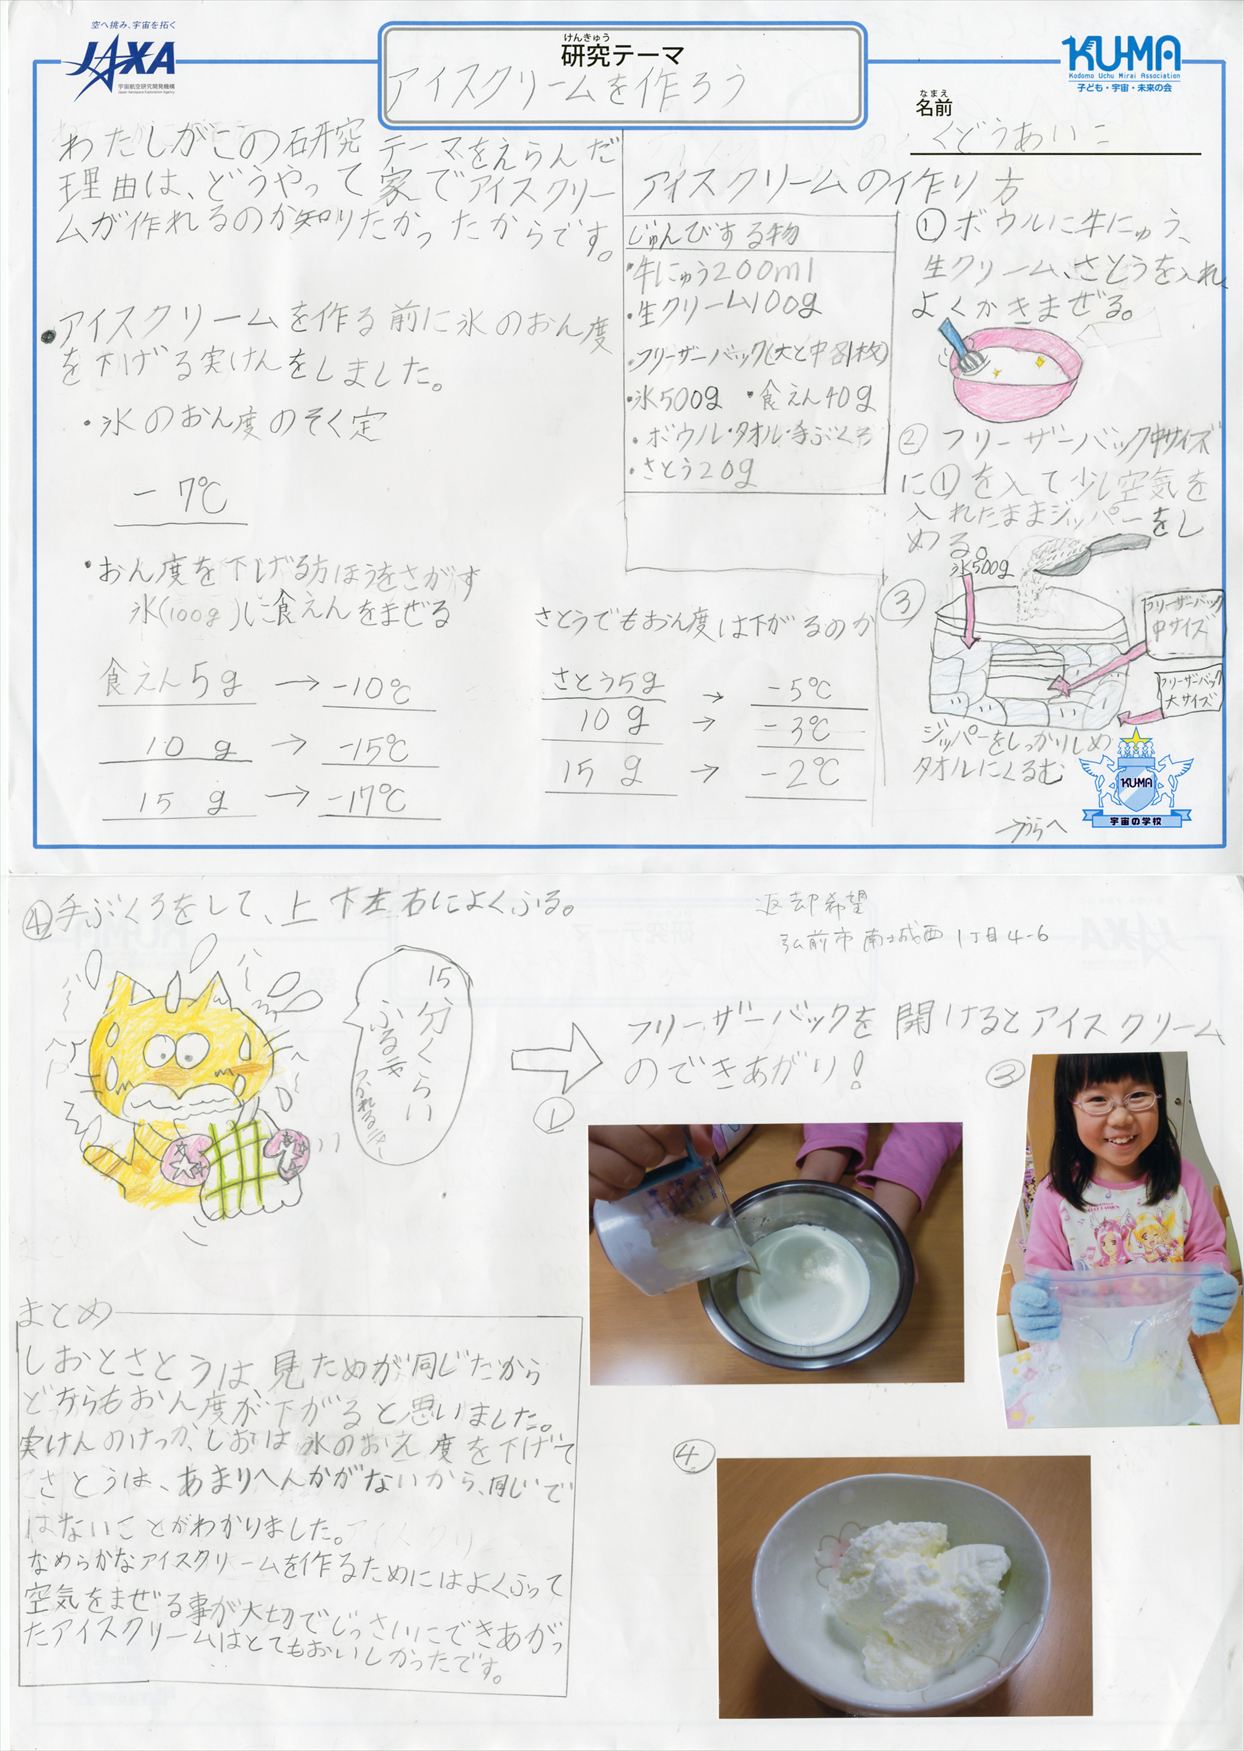 空へ挑み、宇宙を拓く
JAXA
宇宙航空研究開発機構
Japan Aerospace Exploration Agency
けんきゅう
研究テーマ
アイスクリームを作ろう
KU-MA
Kodomo Uchu Mirai Association
子ども・宇宙・未来の会
なまえ
名前
くどうあいこ
わたしがこの研究テーマをえらんだ
理由は、どうやって家でアイスクリー
ムが作れるのか知りたかったからです。
・アイスクリームを作る前に氷のおん度
を下げる実けんをしました。
・氷のおん度のそく定
-7℃
・おん度を下げる方ほうをさがす
氷(100g)に食えんをまぜる
食えん5g → -10℃
10g → -15℃
15g → -17℃
さとうでもおん度は下がるのか
さとう5g → -5℃
10g → -3℃
15g → -2℃
アイスクリームの作り方
じゅんびする物
・牛にゅう200ml
・生クリーム100g
・フリーザーバック(大と中各1枚)
・氷500g ・食えん40g
・ボウル・タオル・手ぶくろ
・さとう20g
①ボウルに牛にゅう、
生クリーム、さとうを入れ
よくかきまぜる。
②フリーザーバック中サイズ
に①を入て少し空気を
入れたままジッパーをし
める。
③
氷500g
フリーザーバック
中サイズ
フリーザーバック
大サイズ
ジッパーをしっかりしめ
タオルにくるむ
KUMA
宇宙の学校
→うらへ
④手ぶくろをして、上下左右によくふる。
返却希望
弘前市南城西1丁目4-6
15分くらい
ふるニャ
つかれるニャー
フリーザーバックを開けるとアイスクリーム
のできあがり!
①
③
④
まとめ
しおとさとうは見ためが同じだから
どちらもおん度が下がると思いました。
実けんのけっか、しおは氷のおん度を下げて
さとうは、あまりへんかがないから、同じで
はないことがわかりました。
なめらかなアイスクリームを作るためにはよくふって
空気をまぜる事が大切でじっさいにできあがっ
たアイスクリームはとてもおいしかったです。